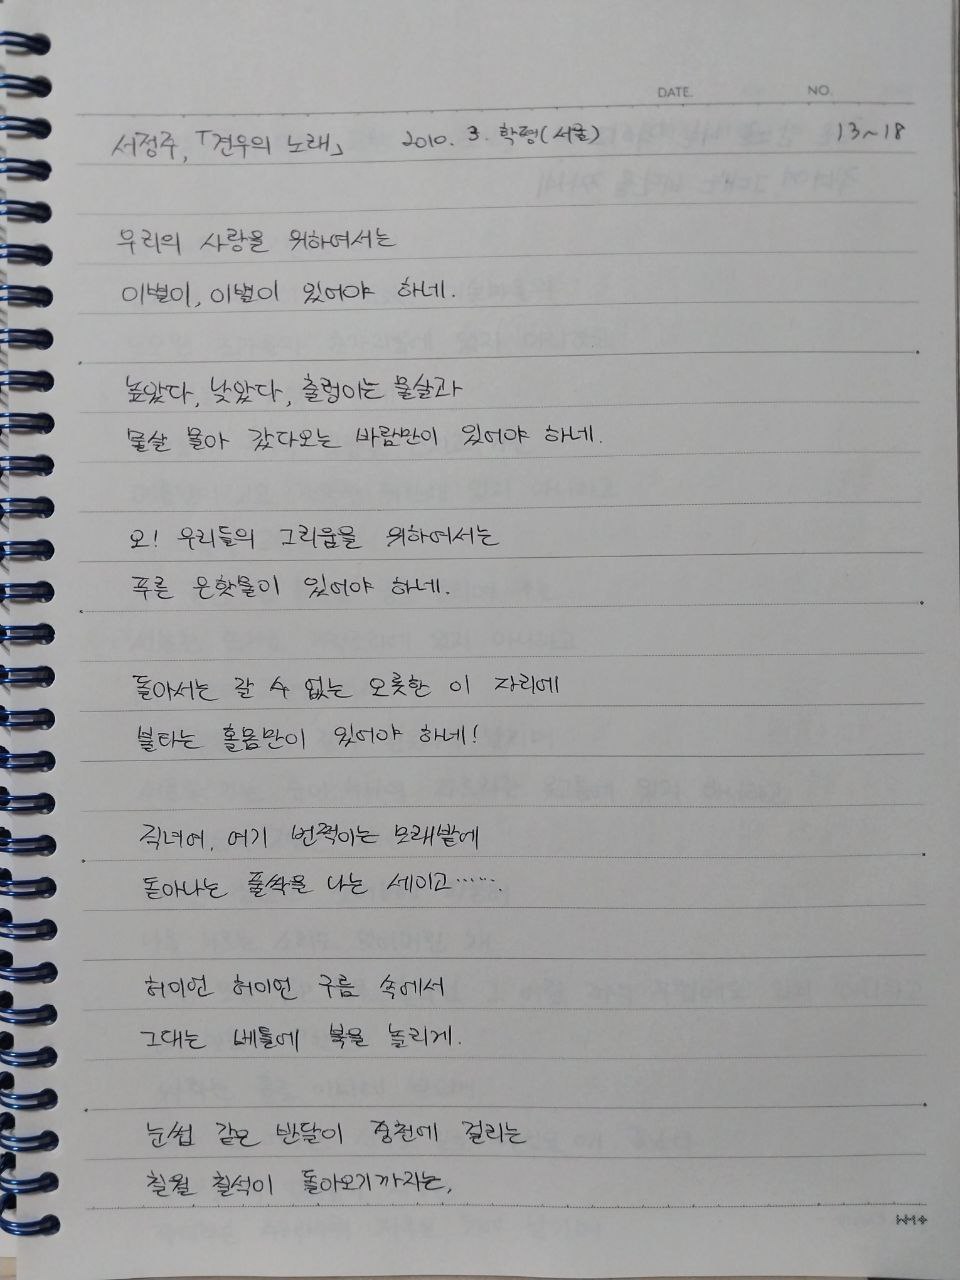 DATE. NO.
서정주, 「견우의 노래」 2010. 3. 학평(서울) 13~18
우리의 사랑을 위하여서는
이별이, 이별이 있어야 하네.
높았다, 낮았다, 출렁이는 물살과
물살 몰아 갔다오는 바람만이 있어야 하네.
오! 우리들의 그리움을 위하여서는
푸른 은핫물이 있어야 하네.
돌아서는 갈 수 없는 오롯한 이 자리에
불타는 홀몸만이 있어야 하네!
직녀여, 여기 번쩍이는 모래밭에
돋아나는 풀싹을 나는 세이고…….
허이언 허이언 구름 속에서
그대는 베틀에 북을 놀리게.
눈썹 같은 반달이 중천에 걸리는
칠월 칠석이 돌아오기까지는,